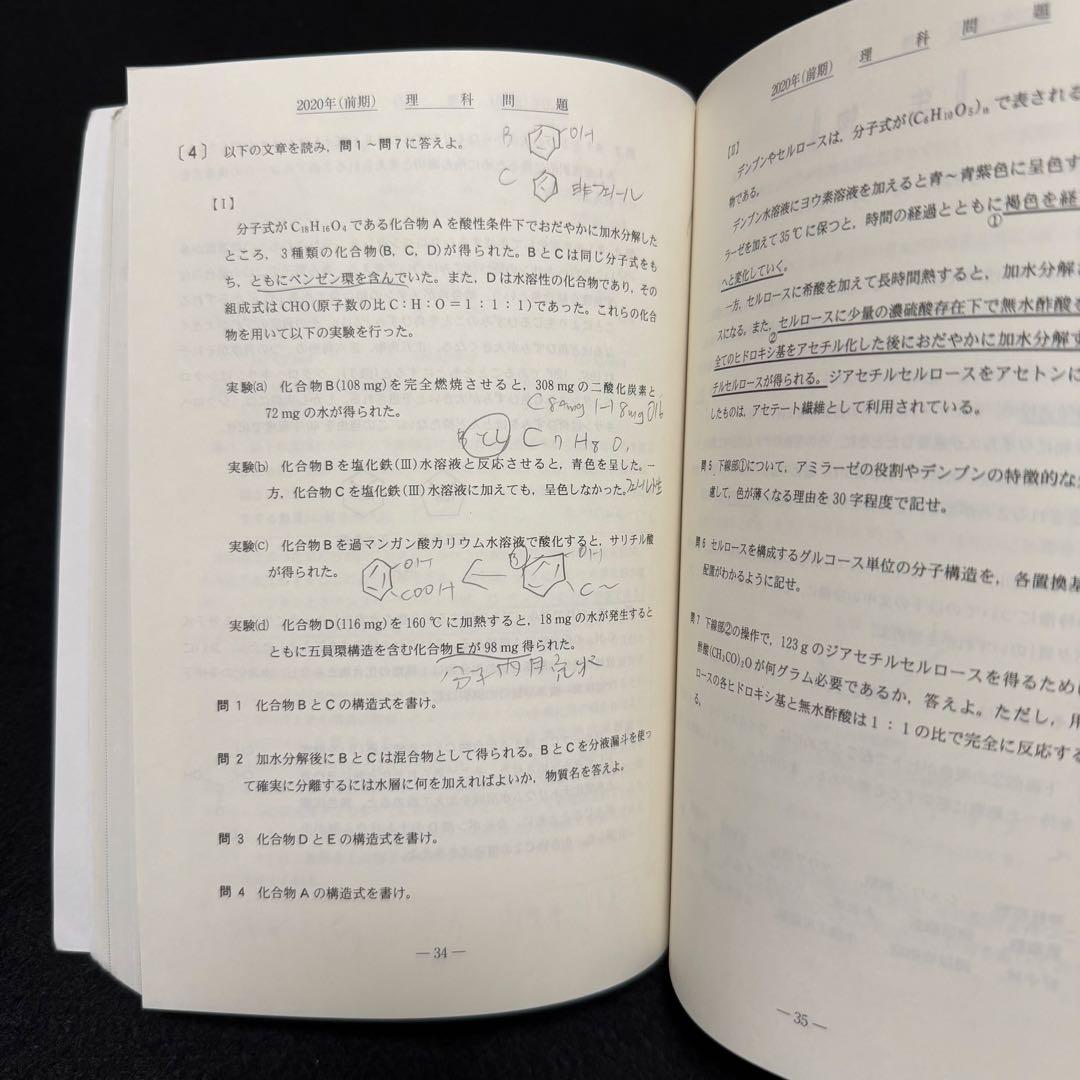 2020年(前期) 理科問題
〔4〕 以下の文章を読み,問1~問7に答えよ。
B OH
C 非フェノール
【I】
分子式がC₁₈H₁₆O₄である化合物Aを酸性条件下でおだやかに加水分解した
ところ,3種類の化合物(B,C,D)が得られた。BとCは同じ分子式をも
ち,ともにベンゼン環を含んでいた。また,Dは水溶性の化合物であり,その
組成式はCHO(原子数の比C:H:O=1:1:1)であった。これらの化合
物を用いて以下の実験を行った。
実験(a) 化合物B(108 mg)を完全燃焼させると,308 mgの二酸化炭素と
72 mgの水が得られた。
C84mg H8mg O16
C₇H₈O₁
実験(b) 化合物Bを塩化鉄(Ⅲ)水溶液と反応させると,青色を呈した。一
方,化合物Cを塩化鉄(Ⅲ)水溶液に加えても,呈色しなかった。
実験(c) 化合物Bを過マンガン酸カリウム水溶液で酸化すると,サリチル酸
が得られた。
OH
COOH
B OH
C~
実験(d) 化合物D(116 mg)を160℃に加熱すると,18 mgの水が発生すると
ともに五員環構造を含む化合物Eが98 mg得られた。
分子内脱水
問1 化合物BとCの構造式を書け。
問2 加水分解後にBとCは混合物として得られる。BとCを分液漏斗を使っ
て確実に分離するには水層に何を加えればよいか,物質名を答えよ。
問3 化合物DとEの構造式を書け。
問4 化合物Aの構造式を書け。
―34―
2020年(前期) 理科問題
[II]
デンプンやセルロースは,分子式が(C₆H₁₀O₅)ₙで表される
物である。
デンプン水溶液にヨウ素溶液を加えると青~青紫色に呈色す
ラーゼを加えて35℃に保つと,時間の経過とともに褐色を経
①
へと変化していく。
一方,セルロースに希酸を加えて長時間熱すると,加水分解
スになる。また,セルロースに少量の濃硫酸存在下で無水酢酸
②
全てのヒドロキシ基をアセチル化した後におだやかに加水分解す
チルセルロースが得られる。ジアセチルセルロースをアセトンに
したものは,アセテート繊維として利用されている。
問5 下線部①について,アミラーゼの役割やデンプンの特徴的な
慮して,色が薄くなる理由を30字程度で記せ。
問6 セルロースを構成するグルコース単位の分子構造を,各置換基
配置がわかるように記せ。
問7 下線部②の操作で,123 gのジアセチルセルロースを得るため
酢酸(CH₃CO)₂Oが何グラム必要であるか,答えよ。ただし,用
ロースの各ヒドロキシ基と無水酢酸は1:1の比で完全に反応する
る。
―35―